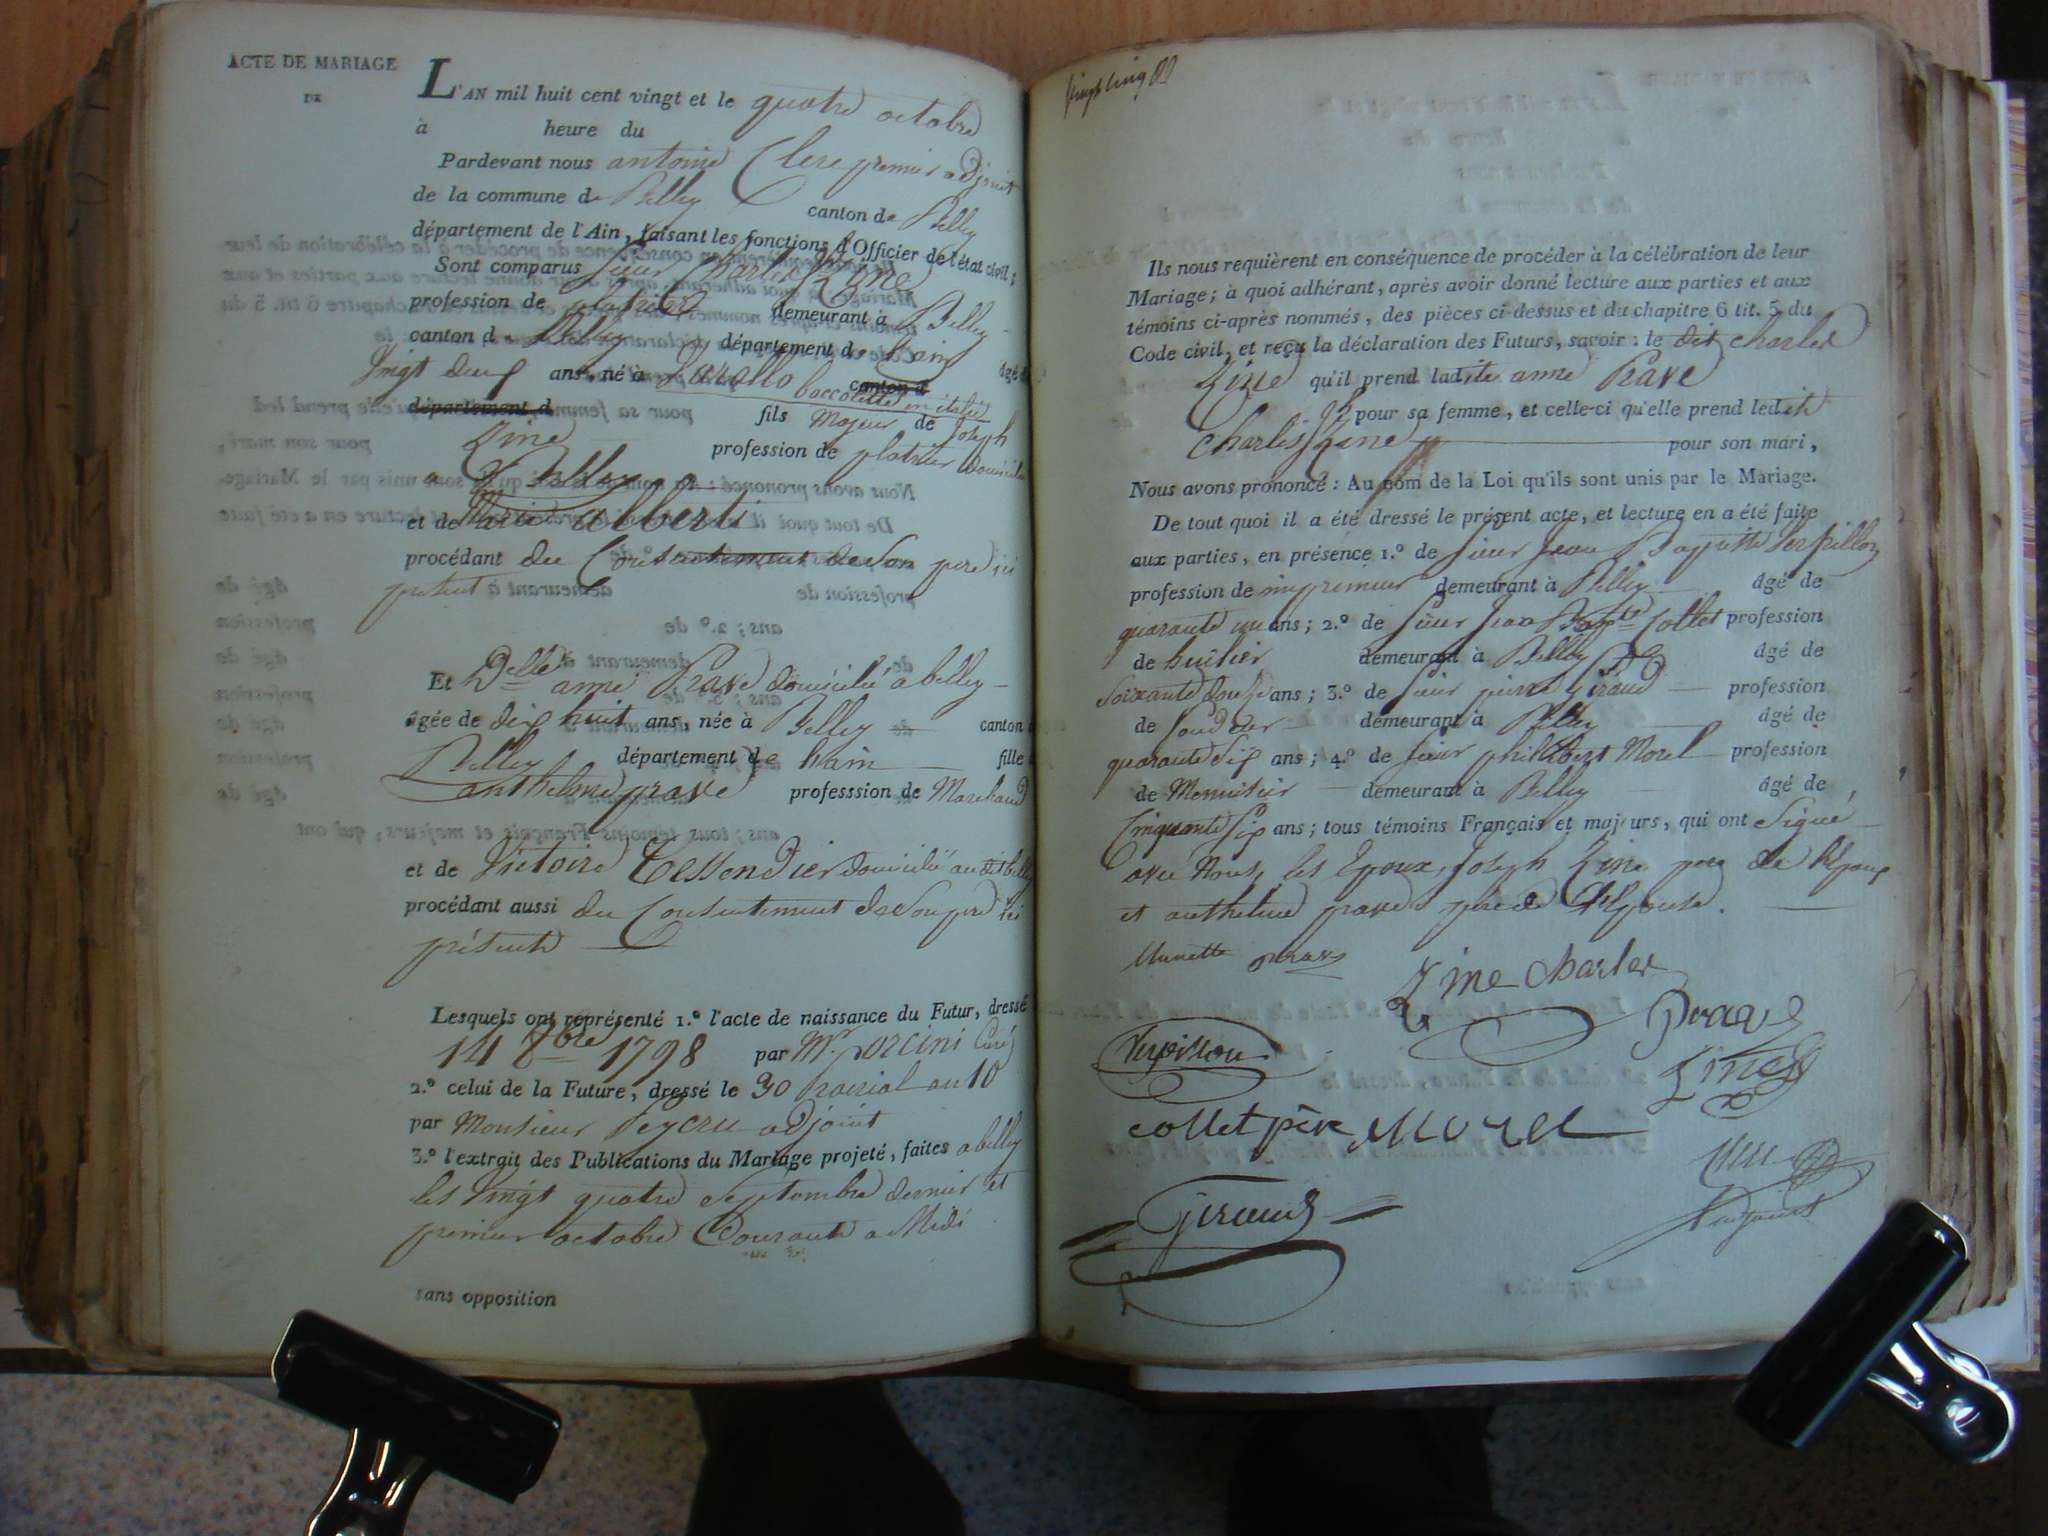 ACTE DE MARIAGE
DE
L'AN mil huit cent vingt et le quatre octobre
à heure du
Pardevant nous antoine Clerc premier adjoint
de la commune de Belley canton de Belley
département de l'Ain, faisant les fonctions d'Officier de l'état civil;
Sont comparus Sieur Charles Zine
profession de platrier demeurant à Belley
canton de Belley département de lain âgé de
Vingt deux ans, né à Varallo canton d
boccolette en italie
département d fils Majeur de Joseph
Zine profession de platrier domicilié
a Belley
et de Marie alberti
procédant du Consentement de Son pere ici
présent
Et Delle anne Prave domiciliée a belley
âgée de dix huit ans, née à Belley canton de
Belley département de lain fille
anthelme prave professsion de Marchand
et de Victoire Tessendier domicilié audit belley
procédant aussi du Consentement de Son pere ici
présente
Lesquels ont représenté 1.º l'acte de naissance du Futur, dressé
14 8bre 1798 par Mr. porcini Curé
2.º celui de la Future, dressé le 30 Prairial an 10
par Monsieur Peycru adjoint
3.º l'extrait des Publications du Mariage projeté, faites a belley
les Vingt quatre Septembre dernier et
premier octobre Courant a Midi
sans opposition
Ils nous requièrent en conséquence de procéder à la célébration de leur
Mariage; à quoi adhérant, après avoir donné lecture aux parties et aux
témoins ci-après nommés, des pièces ci-dessus et du chapitre 6 tit. 5 du
Code civil, et reçu la déclaration des Futurs, savoir: le dit charles
Zine qu'il prend ladite anne Prave
pour sa femme, et celle-ci qu'elle prend ledit
charles Zine pour son mari,
Nous avons prononcé: Au nom de la Loi qu'ils sont unis par le Mariage.
De tout quoi il a été dressé le présent acte, et lecture en a été faite
aux parties, en présence 1.º de Sieur Jean Baptiste Verpillon
profession de imprimeur demeurant à Belley âgé de
quarante un ans; 2.º de Sieur Jean Bapte Collet profession
de huissier demeurant à Belley âgé de
Soixante douze ans; 3.º de Sieur pierre Giraud profession
de fondeur demeurant à Belley âgé de
quarante Six ans; 4.º de Sieur philibert Morel profession
de Menuisier demeurant à Belley âgé de
Cinquante Six ans; tous témoins Français et majeurs, qui ont Signé
avec Nous, les Epoux, Joseph Zine pere de lEpoux
et anthelme prave pere de lEpouse.
Annette prave
Zine Charles
Prave
Verpillon
Zine
collet père Morel
Giraud
adjoint